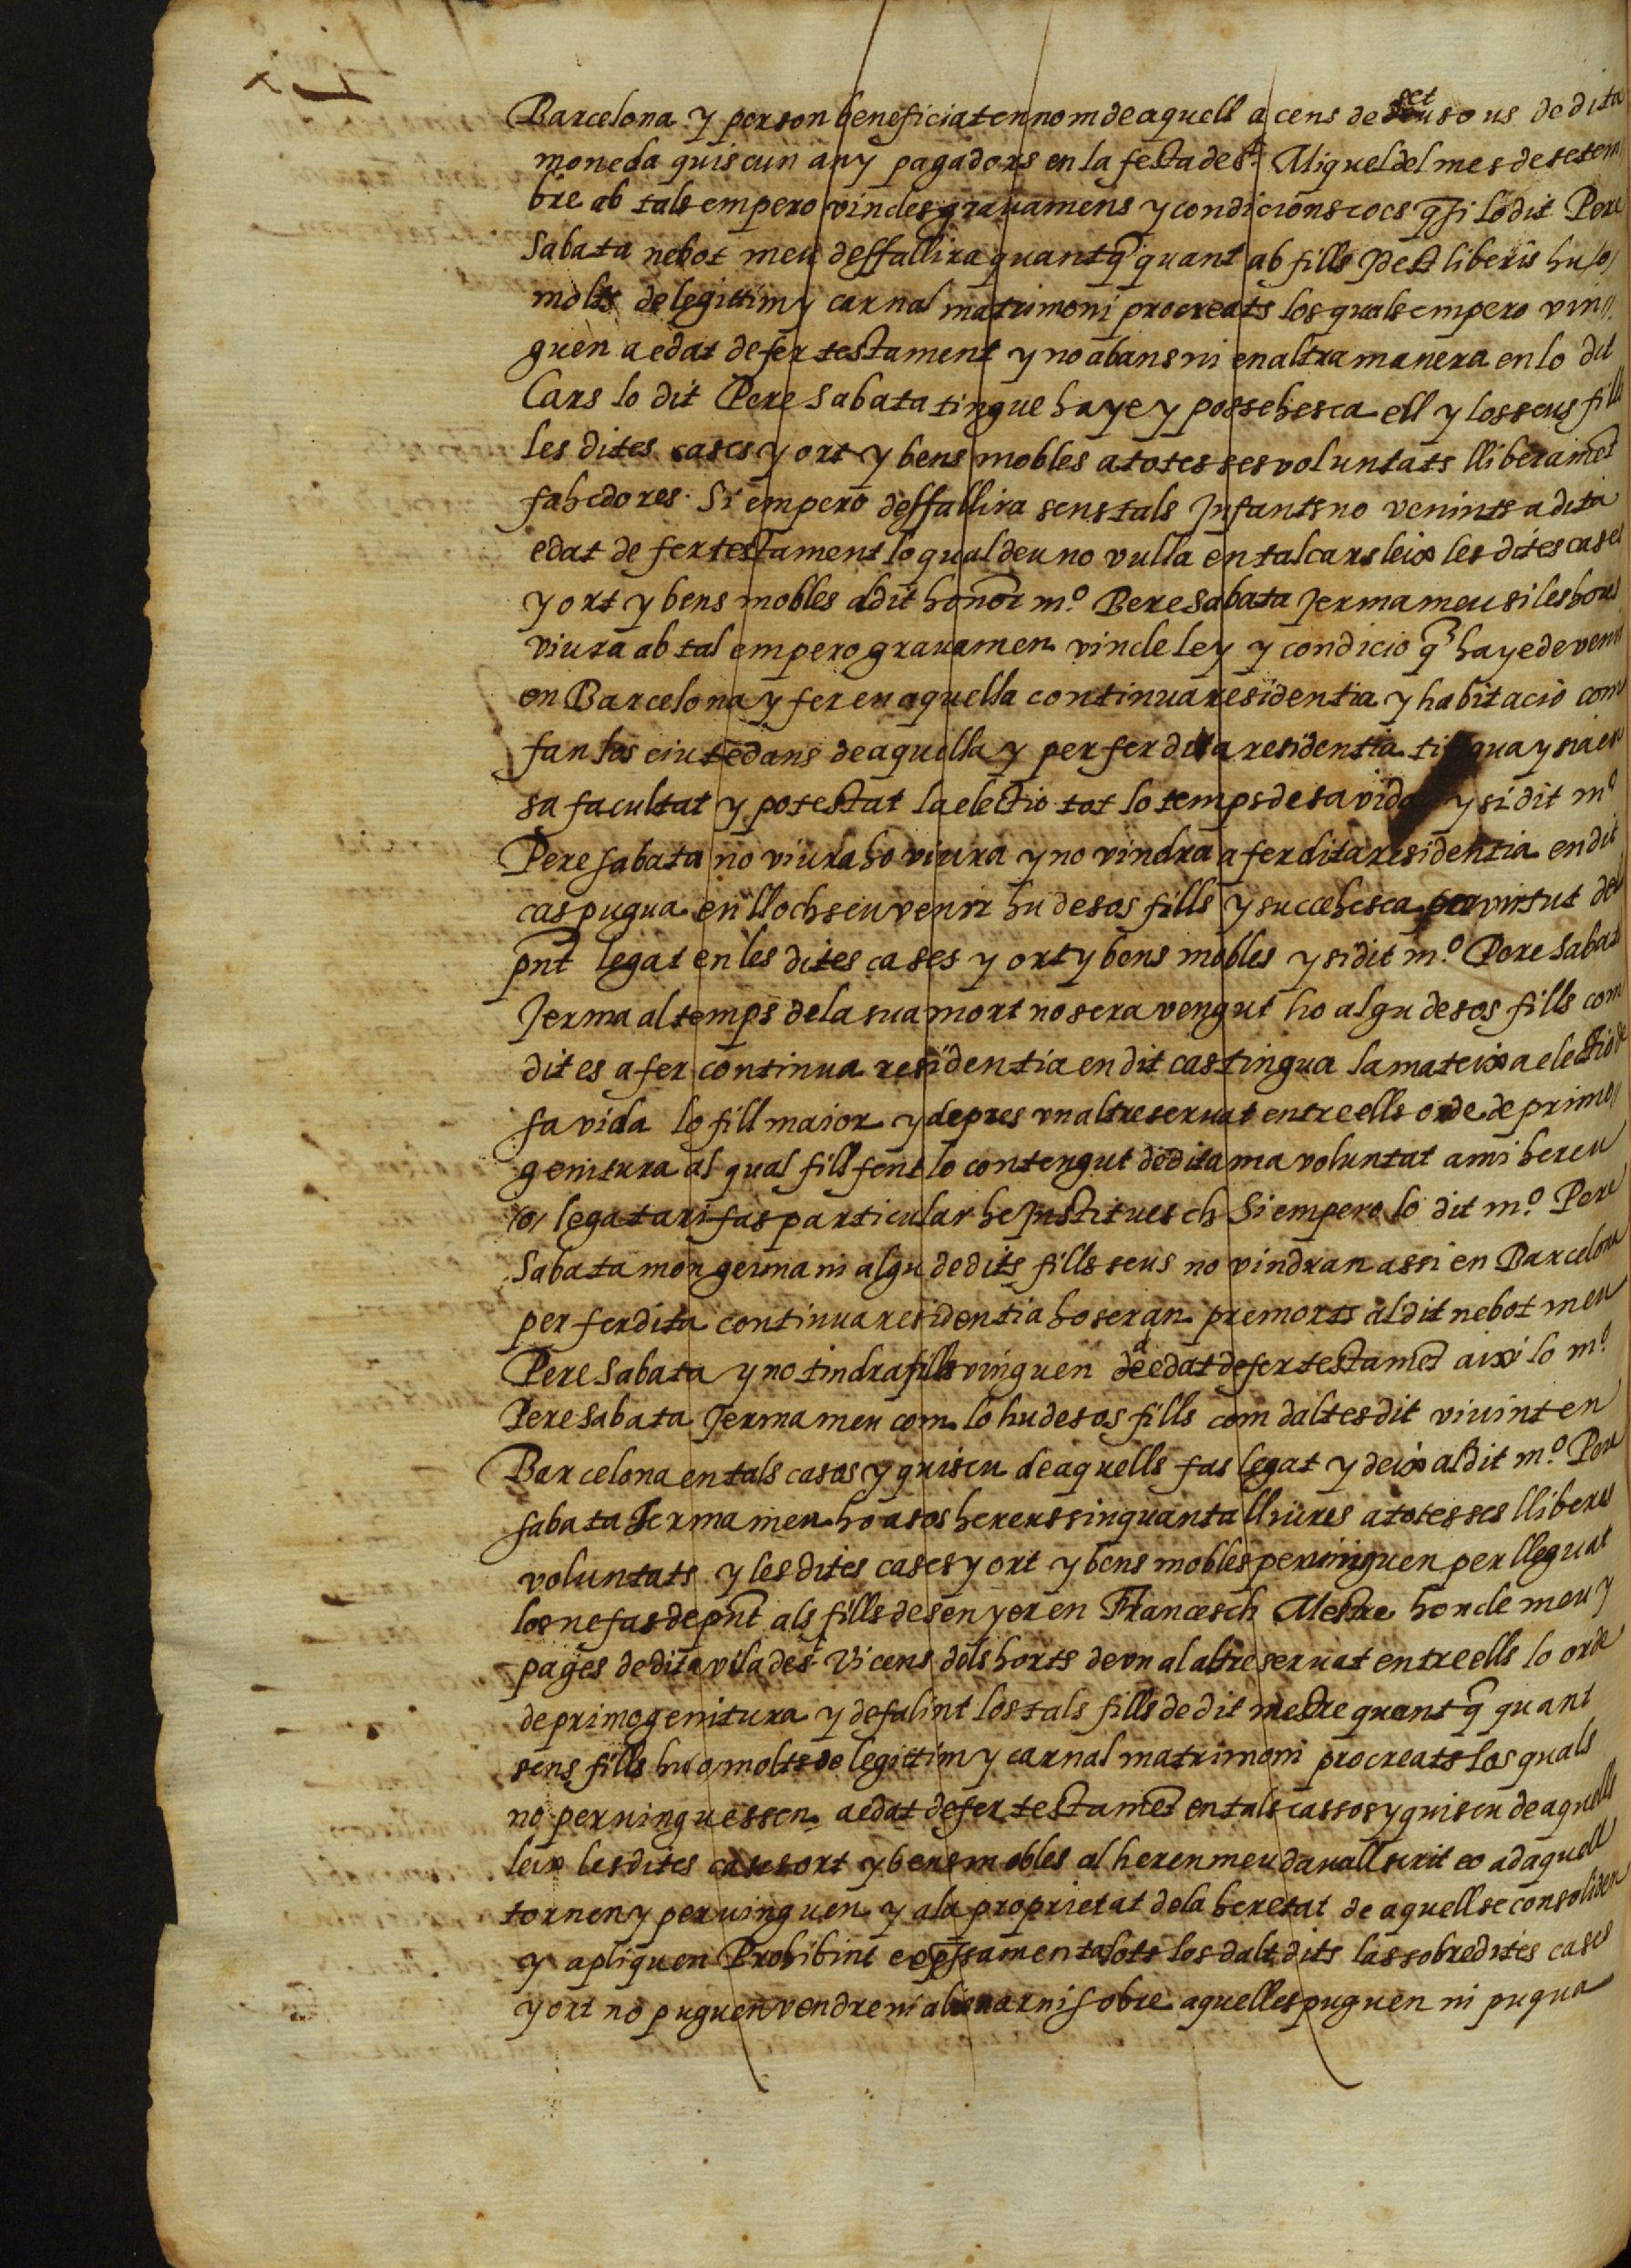 Barcelona y per son beneficiat en nom de aquell a cens de set sous de dita
moneda quiscun any pagadors en la festa de St Miquel del mes de setem
bre ab tals empero vincles gravamens y condicions ço es q si lo dit Pere
Sabata nebot meu deffallira quantq quant ab fills Idest liberis hu /o/
molts de legittim y carnal matrimoni procreats los quals empero vin
guen a edat de fer testament y no abans ni en altra manera en lo dit
Cars lo dit Pere Sabata tingue haye y possehesca ell y los seus fills
les dites cases y ort y bens mobles a totes ses voluntats lliberamet
fahedores. Si empero deffallira sens tals Infants no venints a dita
edat de fer testament lo qual deu no vulla en tal cars leix les dites cases
y ort y bens mobles al dit honor m.º Pere Sabata Jerma meu si les hores
viura ab tal empero gravamen vincle ley y condicio q haye de venir
en Barcelona y fer en aquella continua residentia y habitacio com
fan los ciutedans de aquella y per fer dita residentia tingua y sia en
sa facultat y potestat la electio tot lo temps de sa vida y si dit m.º
Pere Sabata no viura ho viura y no vindra a fer dita residentia en dit
cas pugua en lloch seu venir hu de sos fills y succehesca per virtut del
pnt legat en les dites cases y ort y bens mobles y si dit m.º Pere Sabata
Jerma al temps de la sua mort no sera vengut ho algu de sos fills com
dit es a fer continua residentia en dit cas tingua la mateixa electio de
sa vida lo fill maior y depres vn altre servat entre ells orde de primo
genitura al qual fill fent lo contengut de dita ma voluntat a mi hereu
/o/ legatari fas particular he Institues ch Si empero lo dit m.º Pere
Sabata mon germa ni algu de dits fills seus no vindran assi en Barcelona
per fer dita continua residentia ho seran premorts al dit nebot meu
Pere Sabata y no tindra fills vinguen a edat de fer testamet aixi lo m.º
Pere Sabata Jerma meu com lo hu de sos fills com dalt es dit vivint en
Barcelona en tals casos y quiscu de aquells fas legat y deix al dit m.º Pere
Sabata Jerma meu ho a sos hereus sinquanta lliures a totes ses lliberes
voluntats y les dites cases y ort y bens mobles pervinguen per lleguat
los ne fas de pnt als fills de senyer en Francesch Mestre honcle meu y
pages de dita vila de St Vicens dels horts de vn al altre servat entre ells lo orde
de primogenitura y defalint los tals fills de dit mestre quantq quant
sens fills hu o molts de legittim y carnal matrimoni procreats los quals
no pervinguessen a edat de fer testamet en tals cassos y quiscu de aquells
leix les dites cases ort y bens mobles al hereu meu davall scrit eo ad aquell
tornen y pervinguen y a la proprietat de la heretat de aquell se consoliden
y apliquen Prohibint expssament a tots los dalt dits las sobredites cases
y ort no puguen vendre ni alienar ni sobre aquelles puguen ni pugua